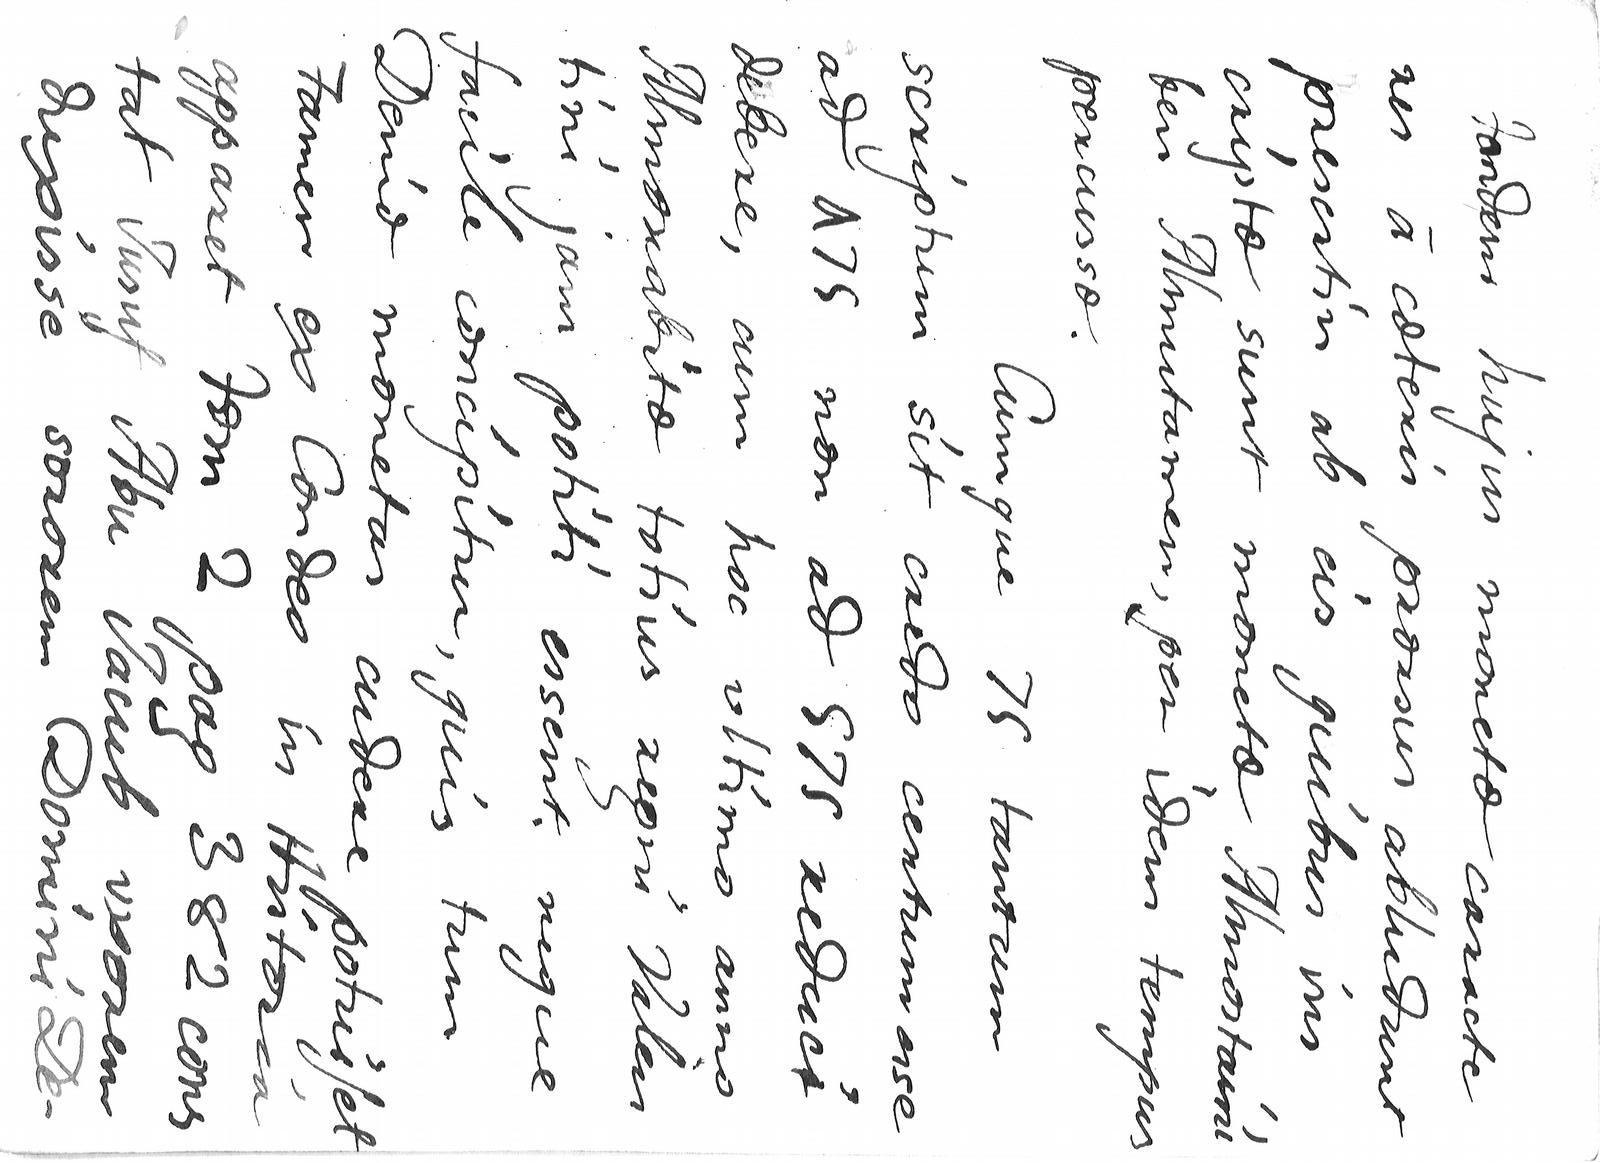 Tandem hujus monetæ caracte
res â cæteris prorsus abludunt
præsertin ab eis quibus ins
criptæ sunt monetæ Almostaini
ben Almutamen, per idem tempus
percussæ.
Cumque 75 tantum
scriptum sit credo centum ose
ad 175 non ad 575 reduci
debere, cum hoc vltimo anno
Almorabitæ totius regni Valen
tini jam potiti essent, neque
facile concipitur, quis tum
Deniæ monetas cudere potuisset
Tamen ex Condeo in Historia
apparet Tom 2 pag 382 cons
tat Jusuf Abu Jacub vxorem
duxisse sororem Domini De-